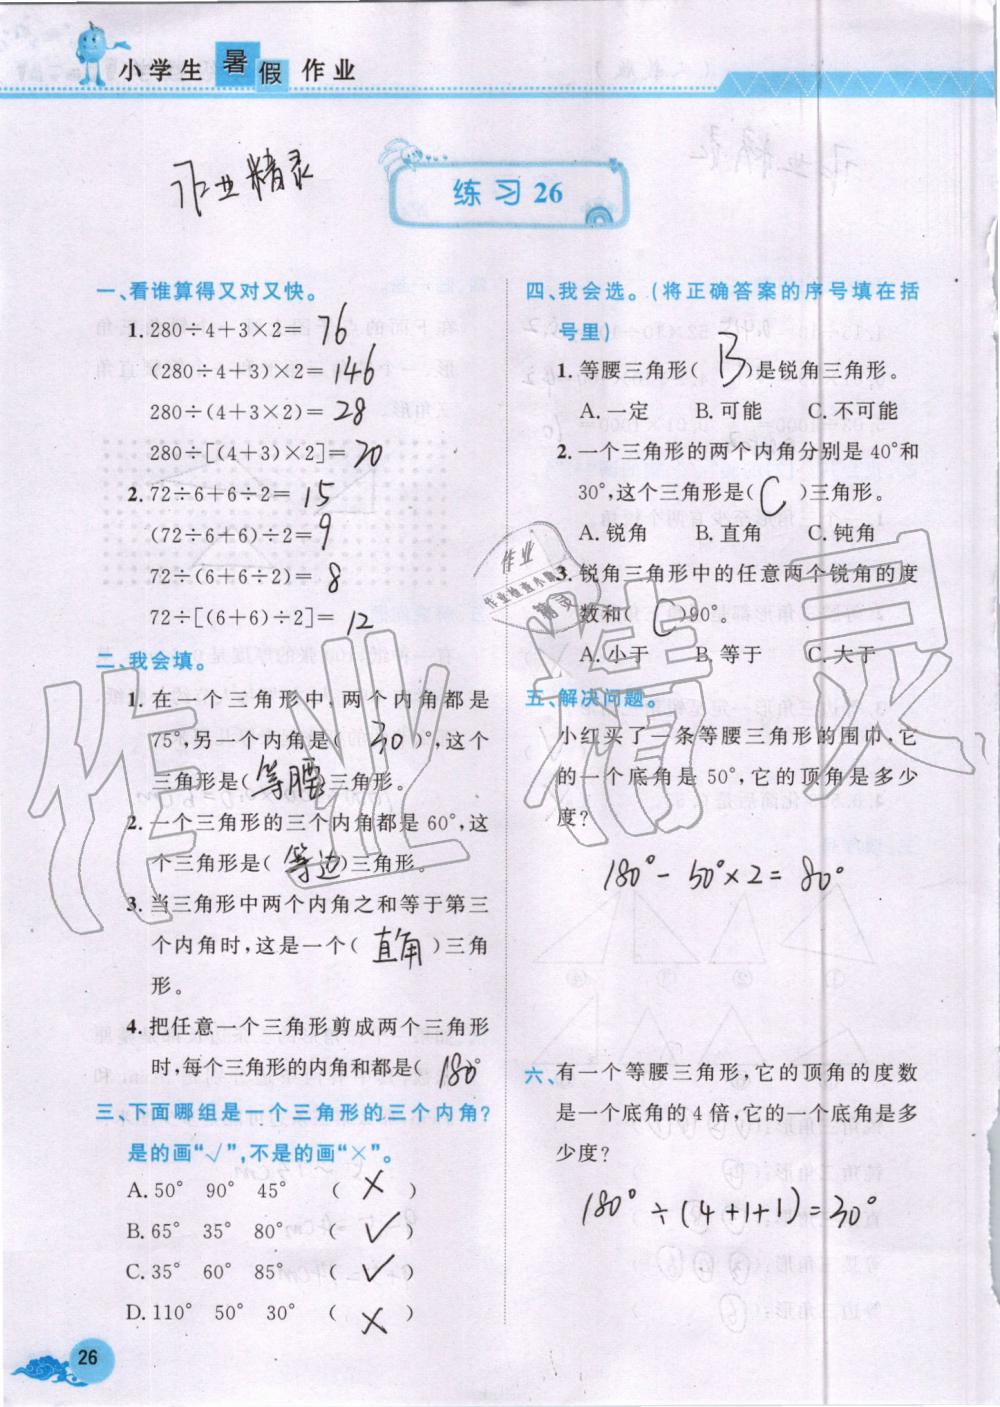 小学生暑假作业
作业精灵
练习26
一、看谁算得又对又快。
1. 280÷4+3×2= 76
(280÷4+3)×2= 146
280÷(4+3×2)= 28
280÷[(4+3)×2]= 20
2. 72÷6+6÷2= 15
(72÷6+6)÷2= 9
72÷(6+6÷2)= 8
72÷[(6+6)÷2]= 12
二、我会填。
1. 在一个三角形中,两个内角都是
75°,另一个内角是( 30 )°,这个
三角形是( 等腰 )三角形。
2. 一个三角形的三个内角都是60°,这
个三角形是( 等边 )三角形。
3. 当三角形中两个内角之和等于第三
个内角时,这是一个( 直角 )三角
形。
4. 把任意一个三角形剪成两个三角形
时,每个三角形的内角和都是( 180°
三、下面哪组是一个三角形的三个内角?
是的画“√”,不是的画“×”。
A. 50° 90° 45° ( × )
B. 65° 35° 80° ( √ )
C. 35° 60° 85° ( √ )
D. 110° 50° 30° ( × )
26
四、我会选。(将正确答案的序号填在括
号里)
1. 等腰三角形( B )是锐角三角形。
A. 一定 B. 可能 C. 不可能
2. 一个三角形的两个内角分别是40°和
30°,这个三角形是( C )三角形。
A. 锐角 B. 直角 C. 钝角
3. 锐角三角形中的任意两个锐角的度
数和( C )90°。
A. 小于 B. 等于 C. 大于
五、解决问题。
小红买了一条等腰三角形的围巾,它
的一个底角是50°,它的顶角是多少
度?
180°-50°×2=80°
六、有一个等腰三角形,它的顶角的度数
是一个底角的4倍,它的一个底角是多
少度?
180°÷(4+1+1)=30°
作业
作业检查小助
精灵
作业精灵